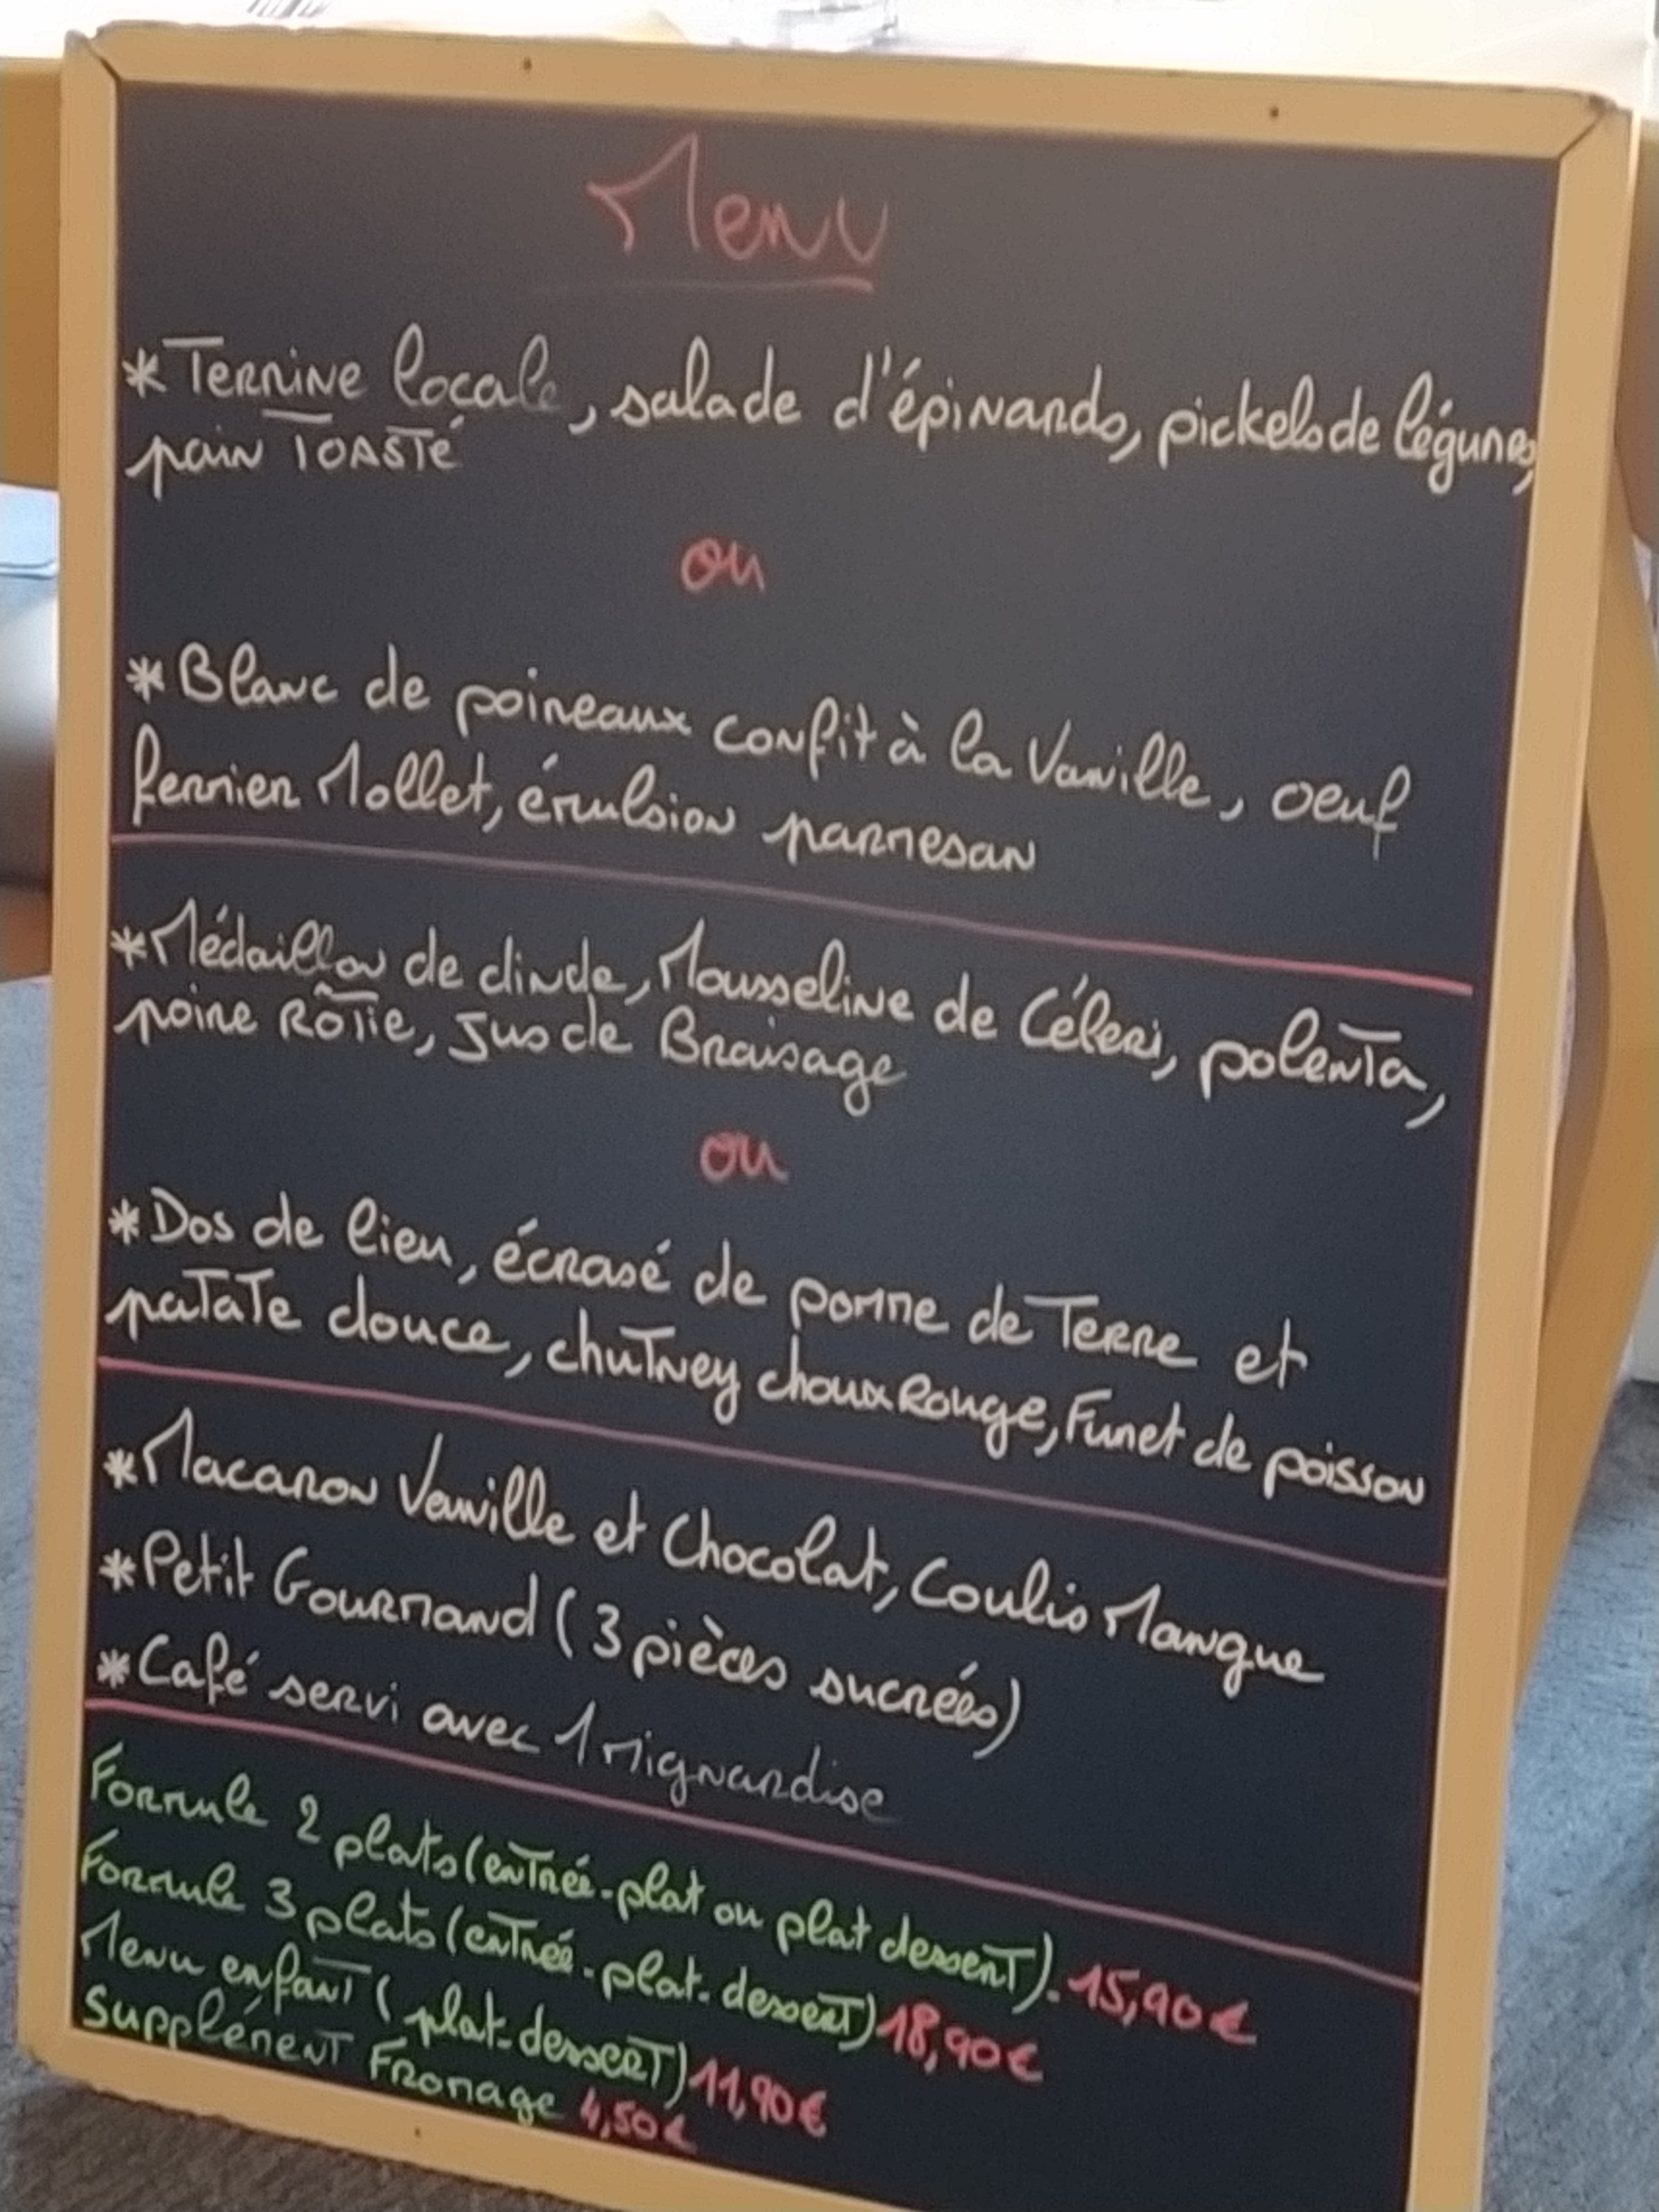 Menu
*Terrine locale, salade d'épinards, pickels de légumes,
pain TOASTé
ou
*Blanc de poireaux confit à la Vanille, oeuf
fermier Mollet, émulsion parmesan
*Médaillon de dinde, Mousseline de Céleri, polenta,
poire Rôtie, Jus de Braisage
ou
*Dos de lieu, écrasé de pomme de Terre et
patate douce, chutney choux Rouge, Fumet de poisson
*Macaron Vanille et Chocolat, Coulis Mangue
*Petit Gourmand (3 pièces sucrées)
*Café servi avec 1 mignardise
Formule 2 plats (entrée-plat ou plat dessert). 15,90€
Formule 3 plats (entrée-plat-dessert) 18,90€
Menu enfant (plat-dessert) 11,90€
Supplément Fromage 4,50€